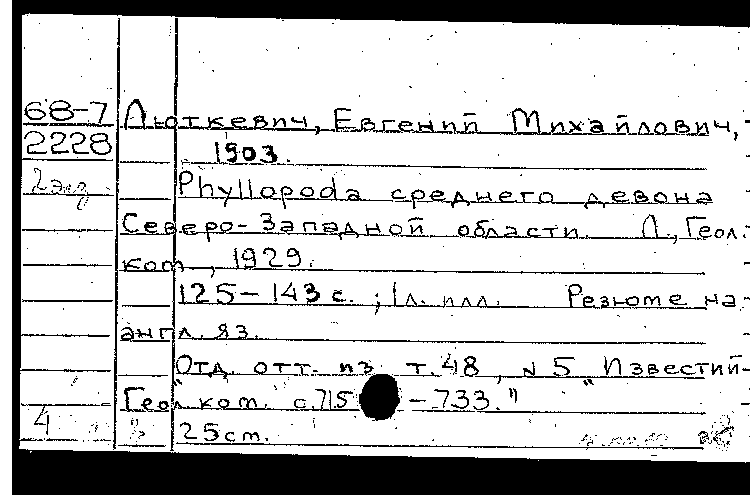 68-7 Люткевич, Евгений Михайлович,
2228 1903.
2 экз. Phyllopoda среднего девона
Северо-Западной области. Л., Геол.
ком., 1929.
125-143 с.; 1 л. илл. Резюме на
англ. яз.
"Отд. отт. из т.48, № 5 "Известий
Геол. ком." с.715-733."
4 25см.